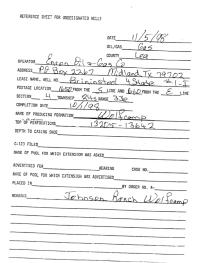 REFERENCE SHEET FOR UNDESIGNATED WELLS
DATE 11/5/98
OIL/GAS Gas
COUNTY Lea
OPERATOR Enron Oil & Gas Co
ADDRESS PO Box 2267 Midland, Tx 79702
LEASE NAME, WELL NO. Brininstool 4 State # 1-I
FOOTAGE LOCATION 1650 FROM THE S LINE AND 660 FROM THE E LINE
SECTION 4 TOWNSHIP 24s RANGE 33e
COMPLETION DATE
NAME OF PRODUCING FORMATION Wolfcamp
TOP OF PERFORATIONS 13642
DEPTH TO CASING SHOE
C-123 FILED
NAME OF POOL FOR WHICH EXTENSION WAS ASKED
ADVERTISED FOR HEARING CASE NO.
NAME OF POOL FOR WHICH EXTENSION WAS ADVERTISED
PLACED IN BY ORDER NO. R-
NEAREST Johnson Ranch Wolfcamp